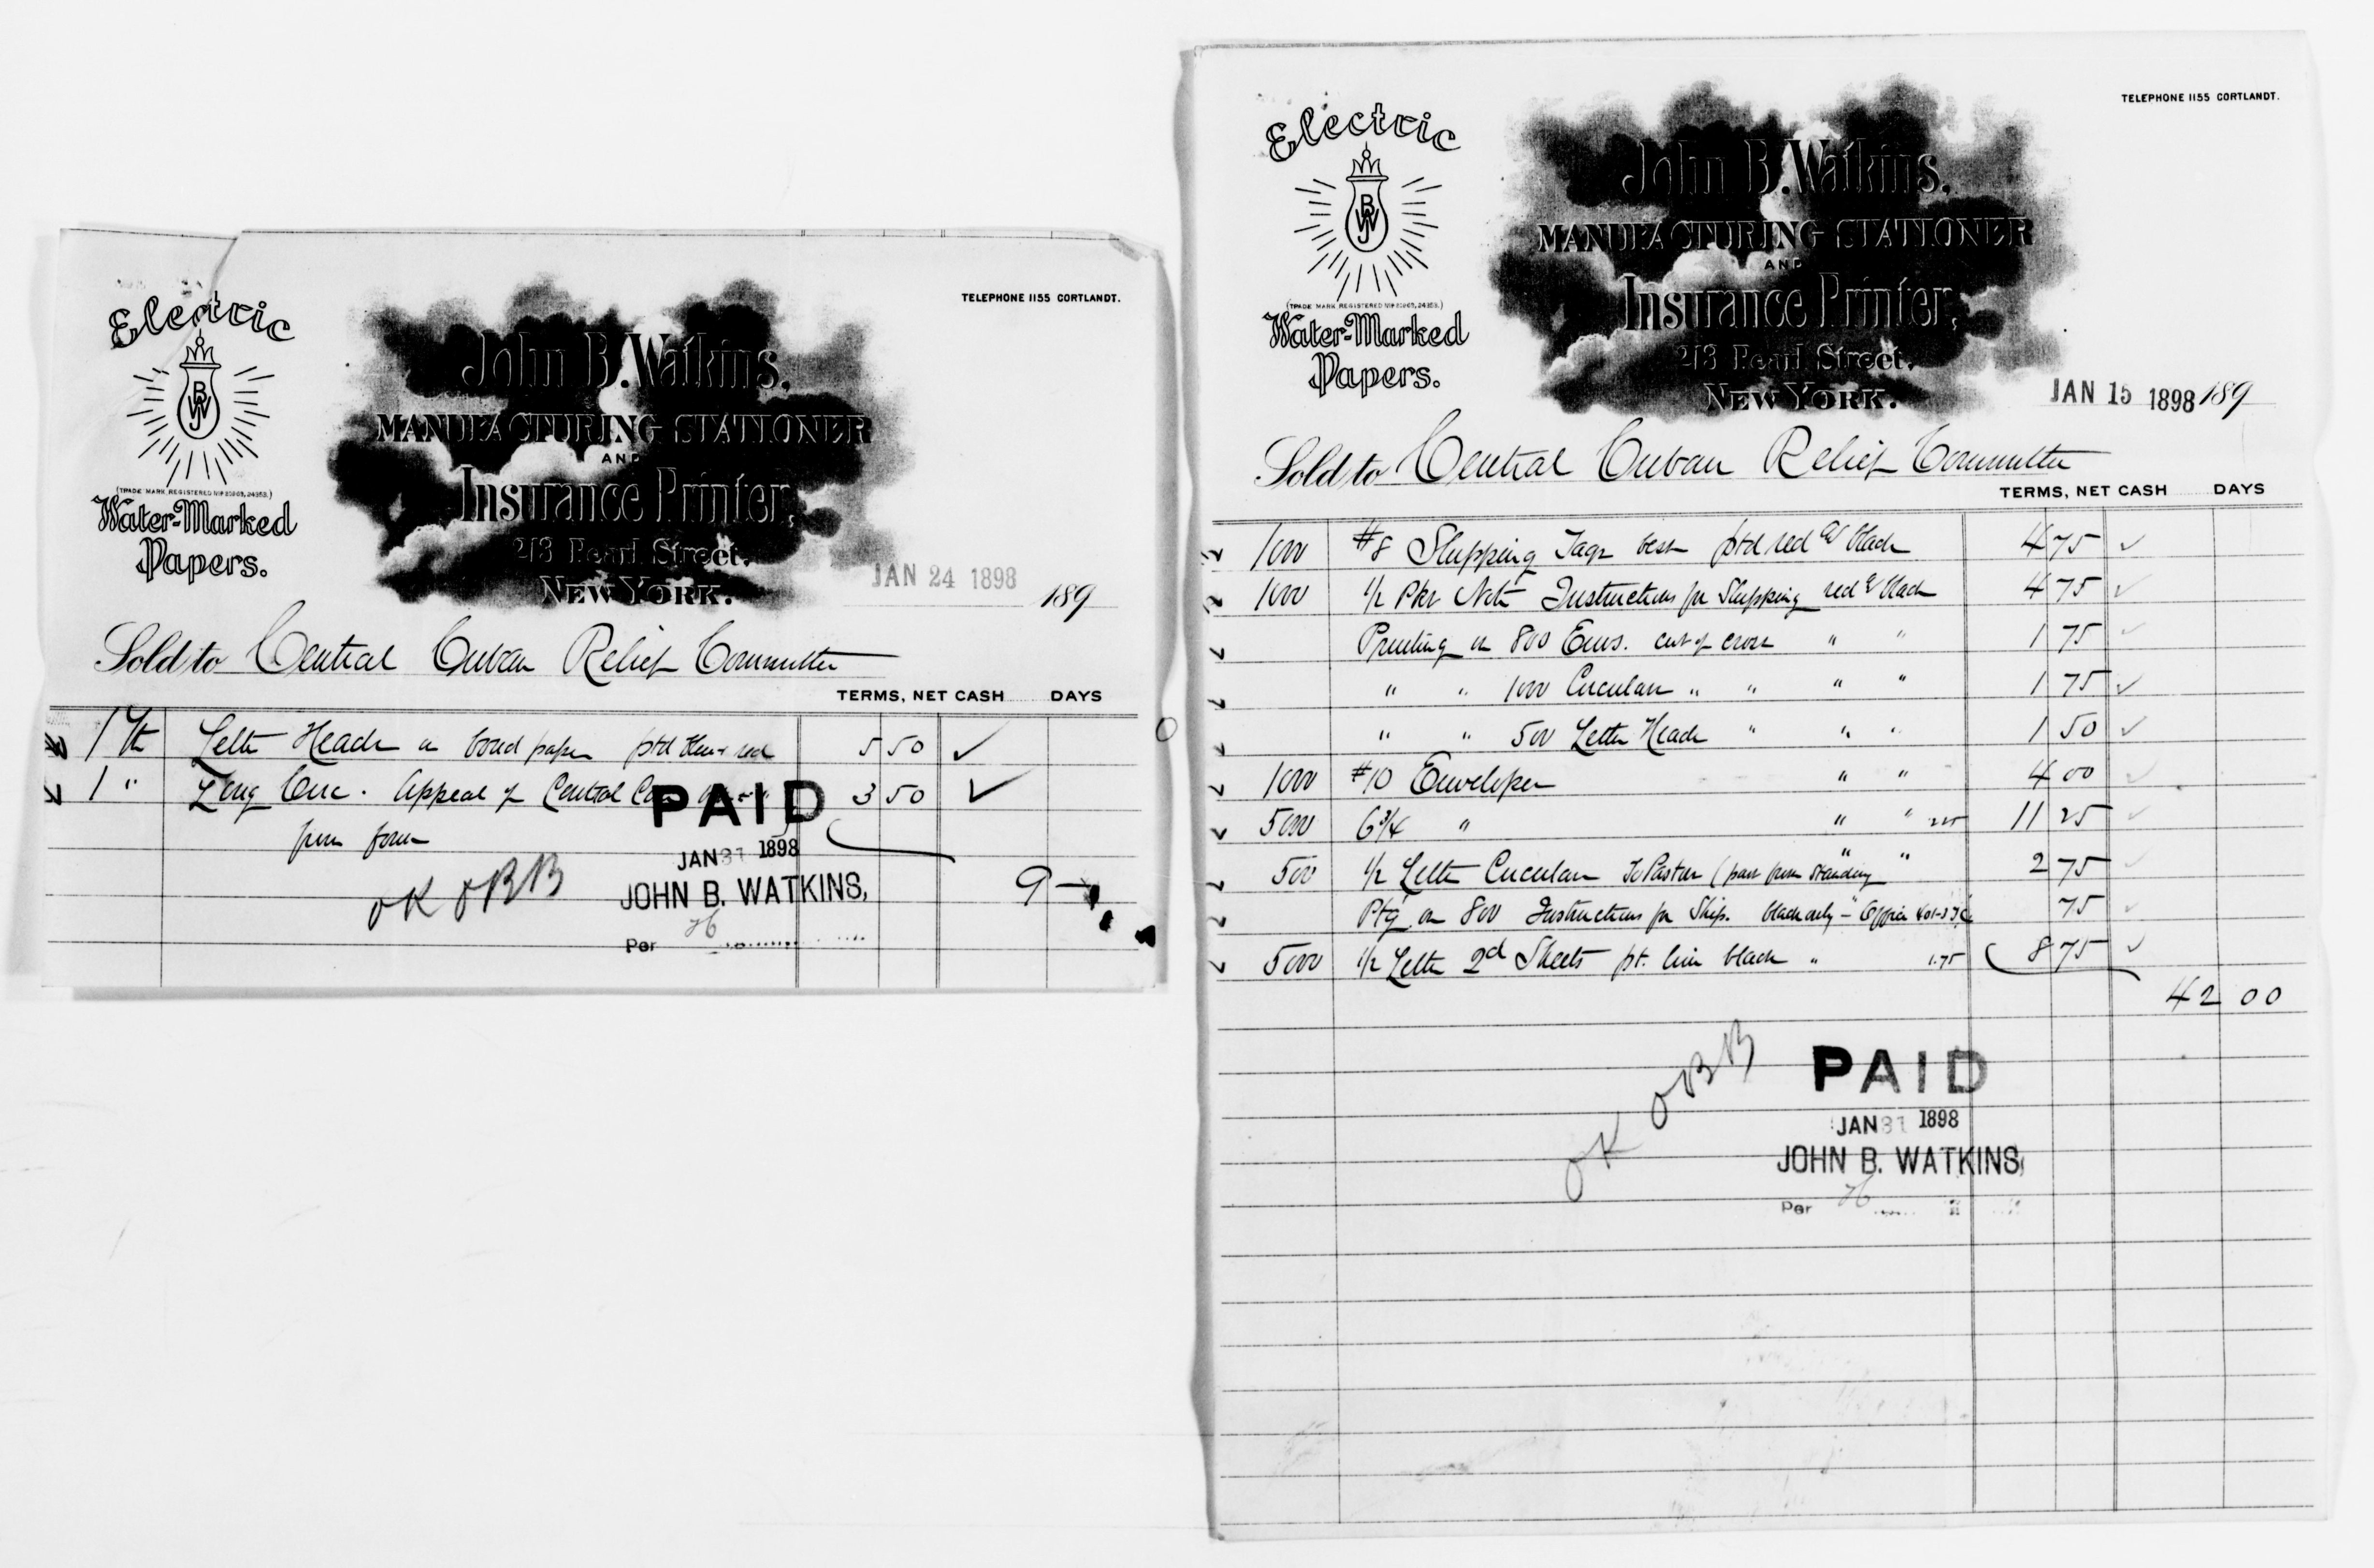 Electric
JBW
(TRADE MARK REGISTERED
Water-Marked
Papers.
TELEPHONE 1155 CORTLANDT.
John B. Watkins,
MANUFACTURING STATIONER
AND
Insurance Printer,
213 Pearl Street,
NEW YORK.
JAN 24 1898 189
Sold to Central Cuban Relief Committee
TERMS, NET CASH DAYS
1 M Letter Heads on bond paper ptd blue & red 5 50 ✓
1 " Circ. Appeal of Central 3 50 ✓
from form
9 —
OK OBB
PAID
JAN 31 1898
JOHN B. WATKINS,
Per H
Electric
JBW
(TRADE MARK REGISTERED
Water-Marked
Papers.
TELEPHONE 1155 CORTLANDT.
John B. Watkins,
MANUFACTURING STATIONER
AND
Insurance Printer,
213 Pearl Street,
NEW YORK.
JAN 15 1898 189
Sold to Central Cuban Relief Committee
TERMS, NET CASH DAYS
1000 #8 Shipping Tags best ptd red & black 4 75 ✓
1000 1/2 Pkt Note Instructions for Shipping red & black 4 75 ✓
Printing on 800 Envs. cut of cross " " 1 75 ✓
" " 1000 Circulars " " " " 1 75 ✓
" " 500 Letter Heads " " " 1 50 ✓
1000 #10 Envelopes " " 4 00 ✓
5000 6 3/4 " " " 225 11 25 ✓
500 1/2 Letter Circulars To Pastor (part from standing " " 2 75 ✓
Ptg on 800 Instructions for Ship. black only - 75 ✓
5000 1/2 Letter 2d Sheets pt. line black " 1.75 8 75 ✓
42 00
OK OBB
PAID
JAN 31 1898
JOHN B. WATKINS,
Per H